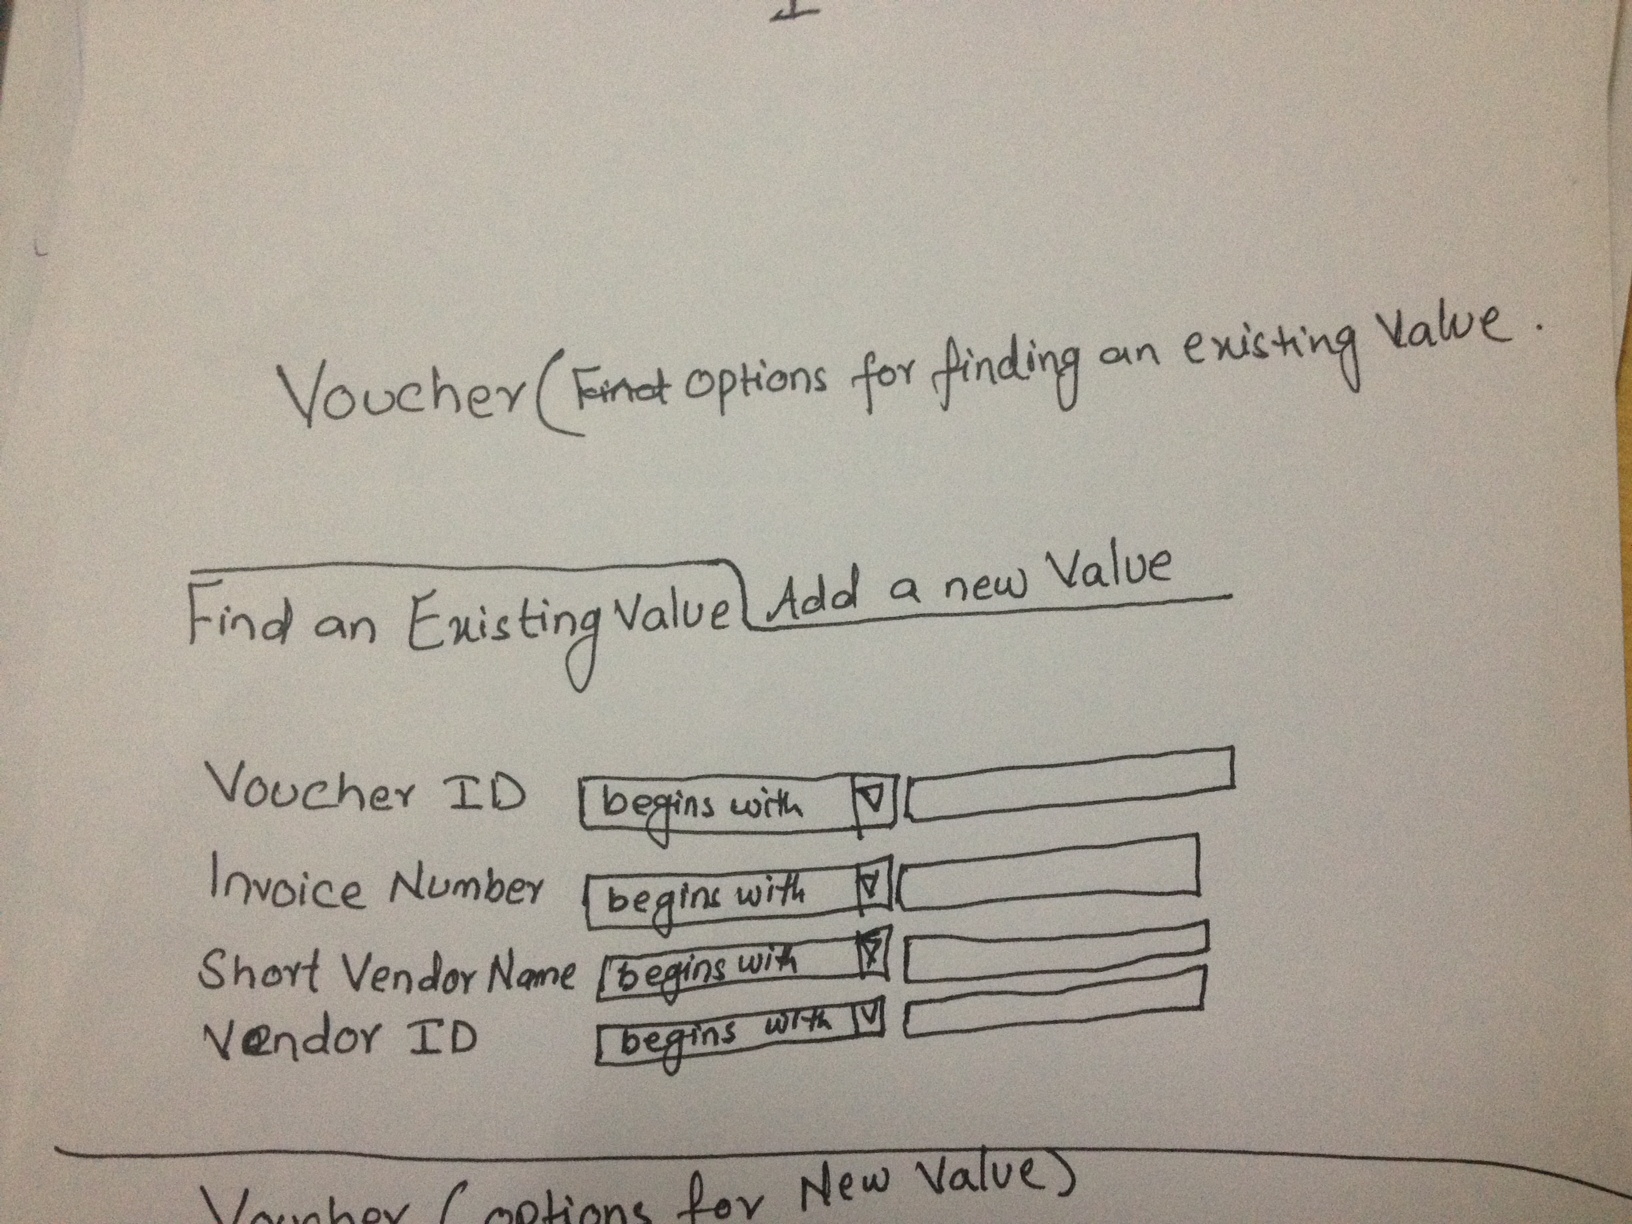 Voucher (Find options for finding an existing Value.
Find an Existing Value Add a new Value
Voucher ID begins with
Invoice Number begins with
Short Vendor Name begins with
Vendor ID begins with
Voucher (options for New Value)